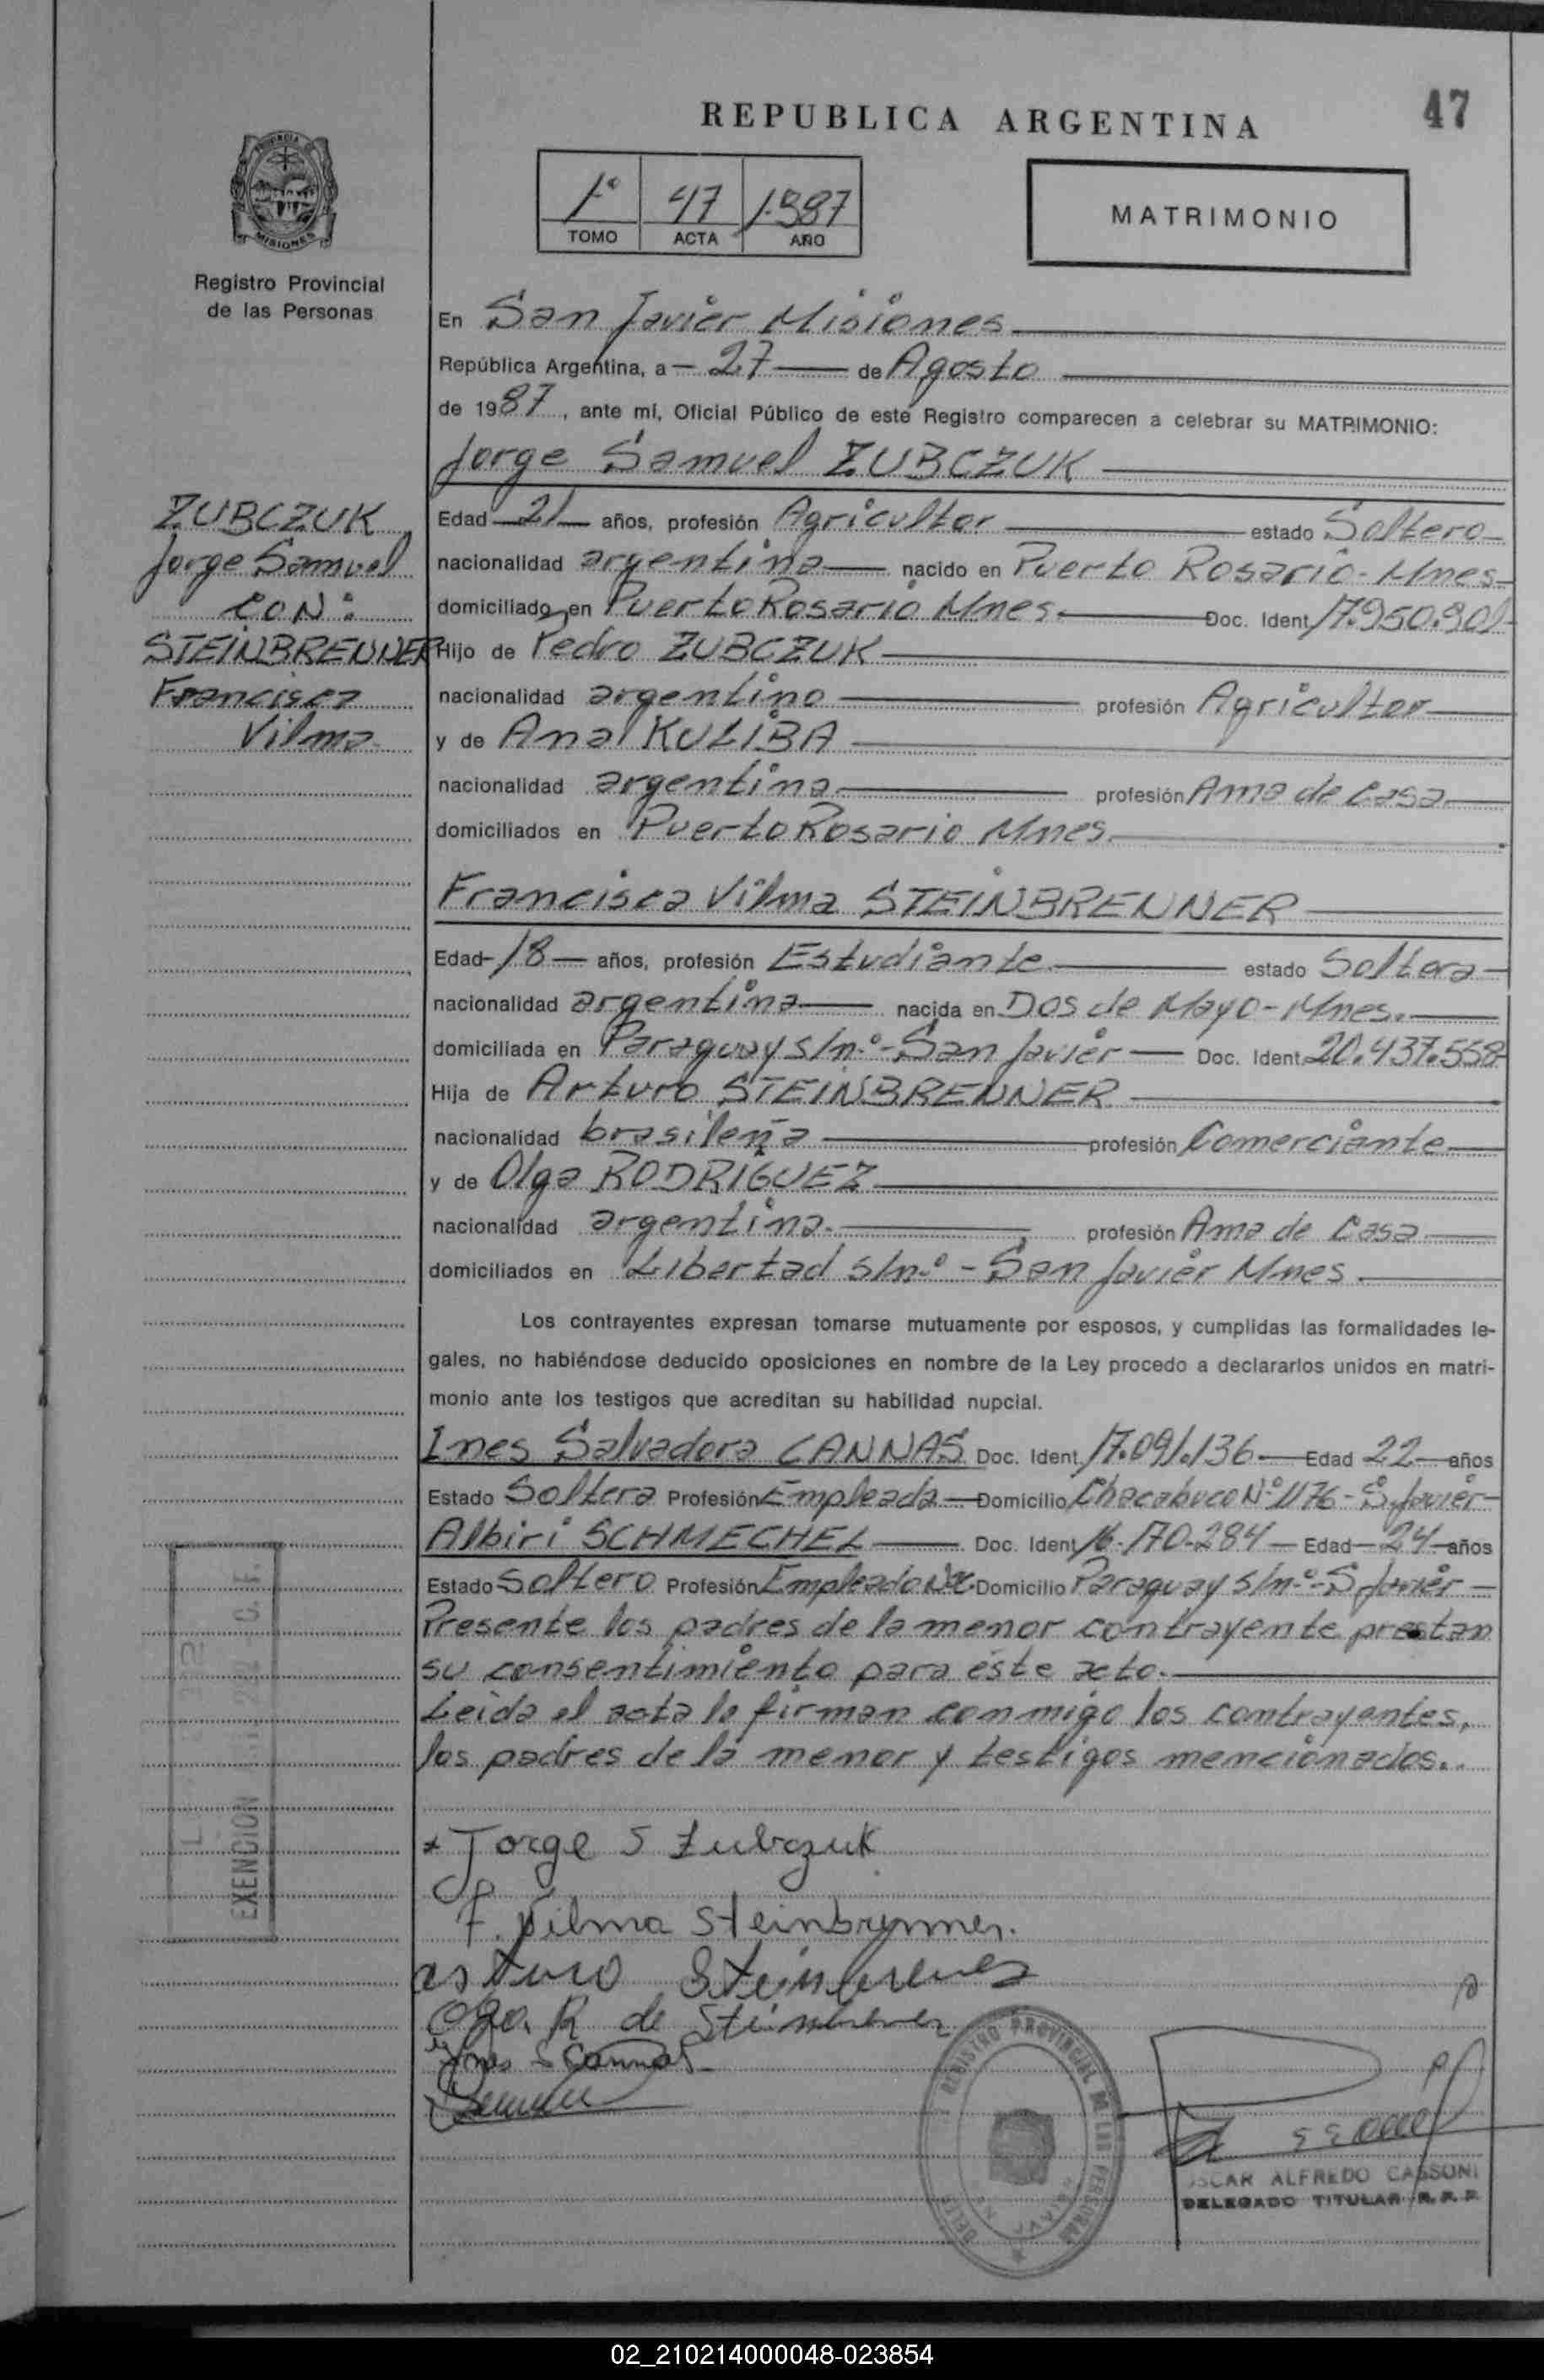 REPUBLICA ARGENTINA
47
1º 47 1.987
TOMO ACTA AÑO
MATRIMONIO
MISIONES
Registro Provincial
de las Personas
En San Javier Misiones
República Argentina, a 27 de Agosto
de 1987, ante mí, Oficial Público de este Registro comparecen a celebrar su MATRIMONIO:
Jorge Samuel ZUBCZUK
ZUBCZUK
Jorge Samuel
CON:
STEINBRENNER
Francisca
Vilma
Edad 21 años, profesión Agricultor estado Soltero
nacionalidad argentina nacido en Puerto Rosario - Mnes
domiciliado en Puerto Rosario Mnes. Doc. Ident 17.950.901
Hijo de Pedro ZUBCZUK
nacionalidad argentino profesión Agricultor
y de Ana KULIBA
nacionalidad argentina profesión Ama de Casa
domiciliados en Puerto Rosario Mnes.
Francisca Vilma STEINBRENNER
Edad 18 años, profesión Estudiante estado Soltera
nacionalidad argentina nacida en Dos de Mayo - Mnes.
domiciliada en Paraguay s/n.º - San Javier Doc. Ident. 20.437.558
Hija de Arturo STEINBRENNER
nacionalidad brasileña profesión Comerciante
y de Olga RODRIGUEZ
nacionalidad argentina. profesión Ama de Casa
domiciliados en Libertad s/n.º - San Javier Mnes.
Los contrayentes expresan tomarse mutuamente por esposos, y cumplidas las formalidades le-
gales, no habiéndose deducido oposiciones en nombre de la Ley procedo a declararlos unidos en matri-
monio ante los testigos que acreditan su habilidad nupcial.
Ines Salvadora CANNAS Doc. Ident. 17.091.136. Edad 22 años
Estado Soltera Profesión Empleada Domicilio Chacabuco Nº 1176 - S. Javier
Albiri SCHMECHEL Doc. Ident 16.170.284 Edad 24 años
Estado Soltero Profesión Empleado Domicilio Paraguay s/n.º - S. Javier
Presente los padres de la menor contrayente prestan
su consentimiento para éste acto.
Leída el acta la firman conmigo los contrayentes,
los padres de la menor y testigos mencionados..
EXENCION
Jorge S Zubczuk
F. Vilma Steinbrenner.
Arturo Steinbrener
Olga. R de Steinbrener
Ines S Cannas
REGISTRO PROVINCIAL DE LAS PERSONAS
OSCAR ALFREDO CASSONI
DELEGADO TITULAR R.P.P.
02_210214000048-023854